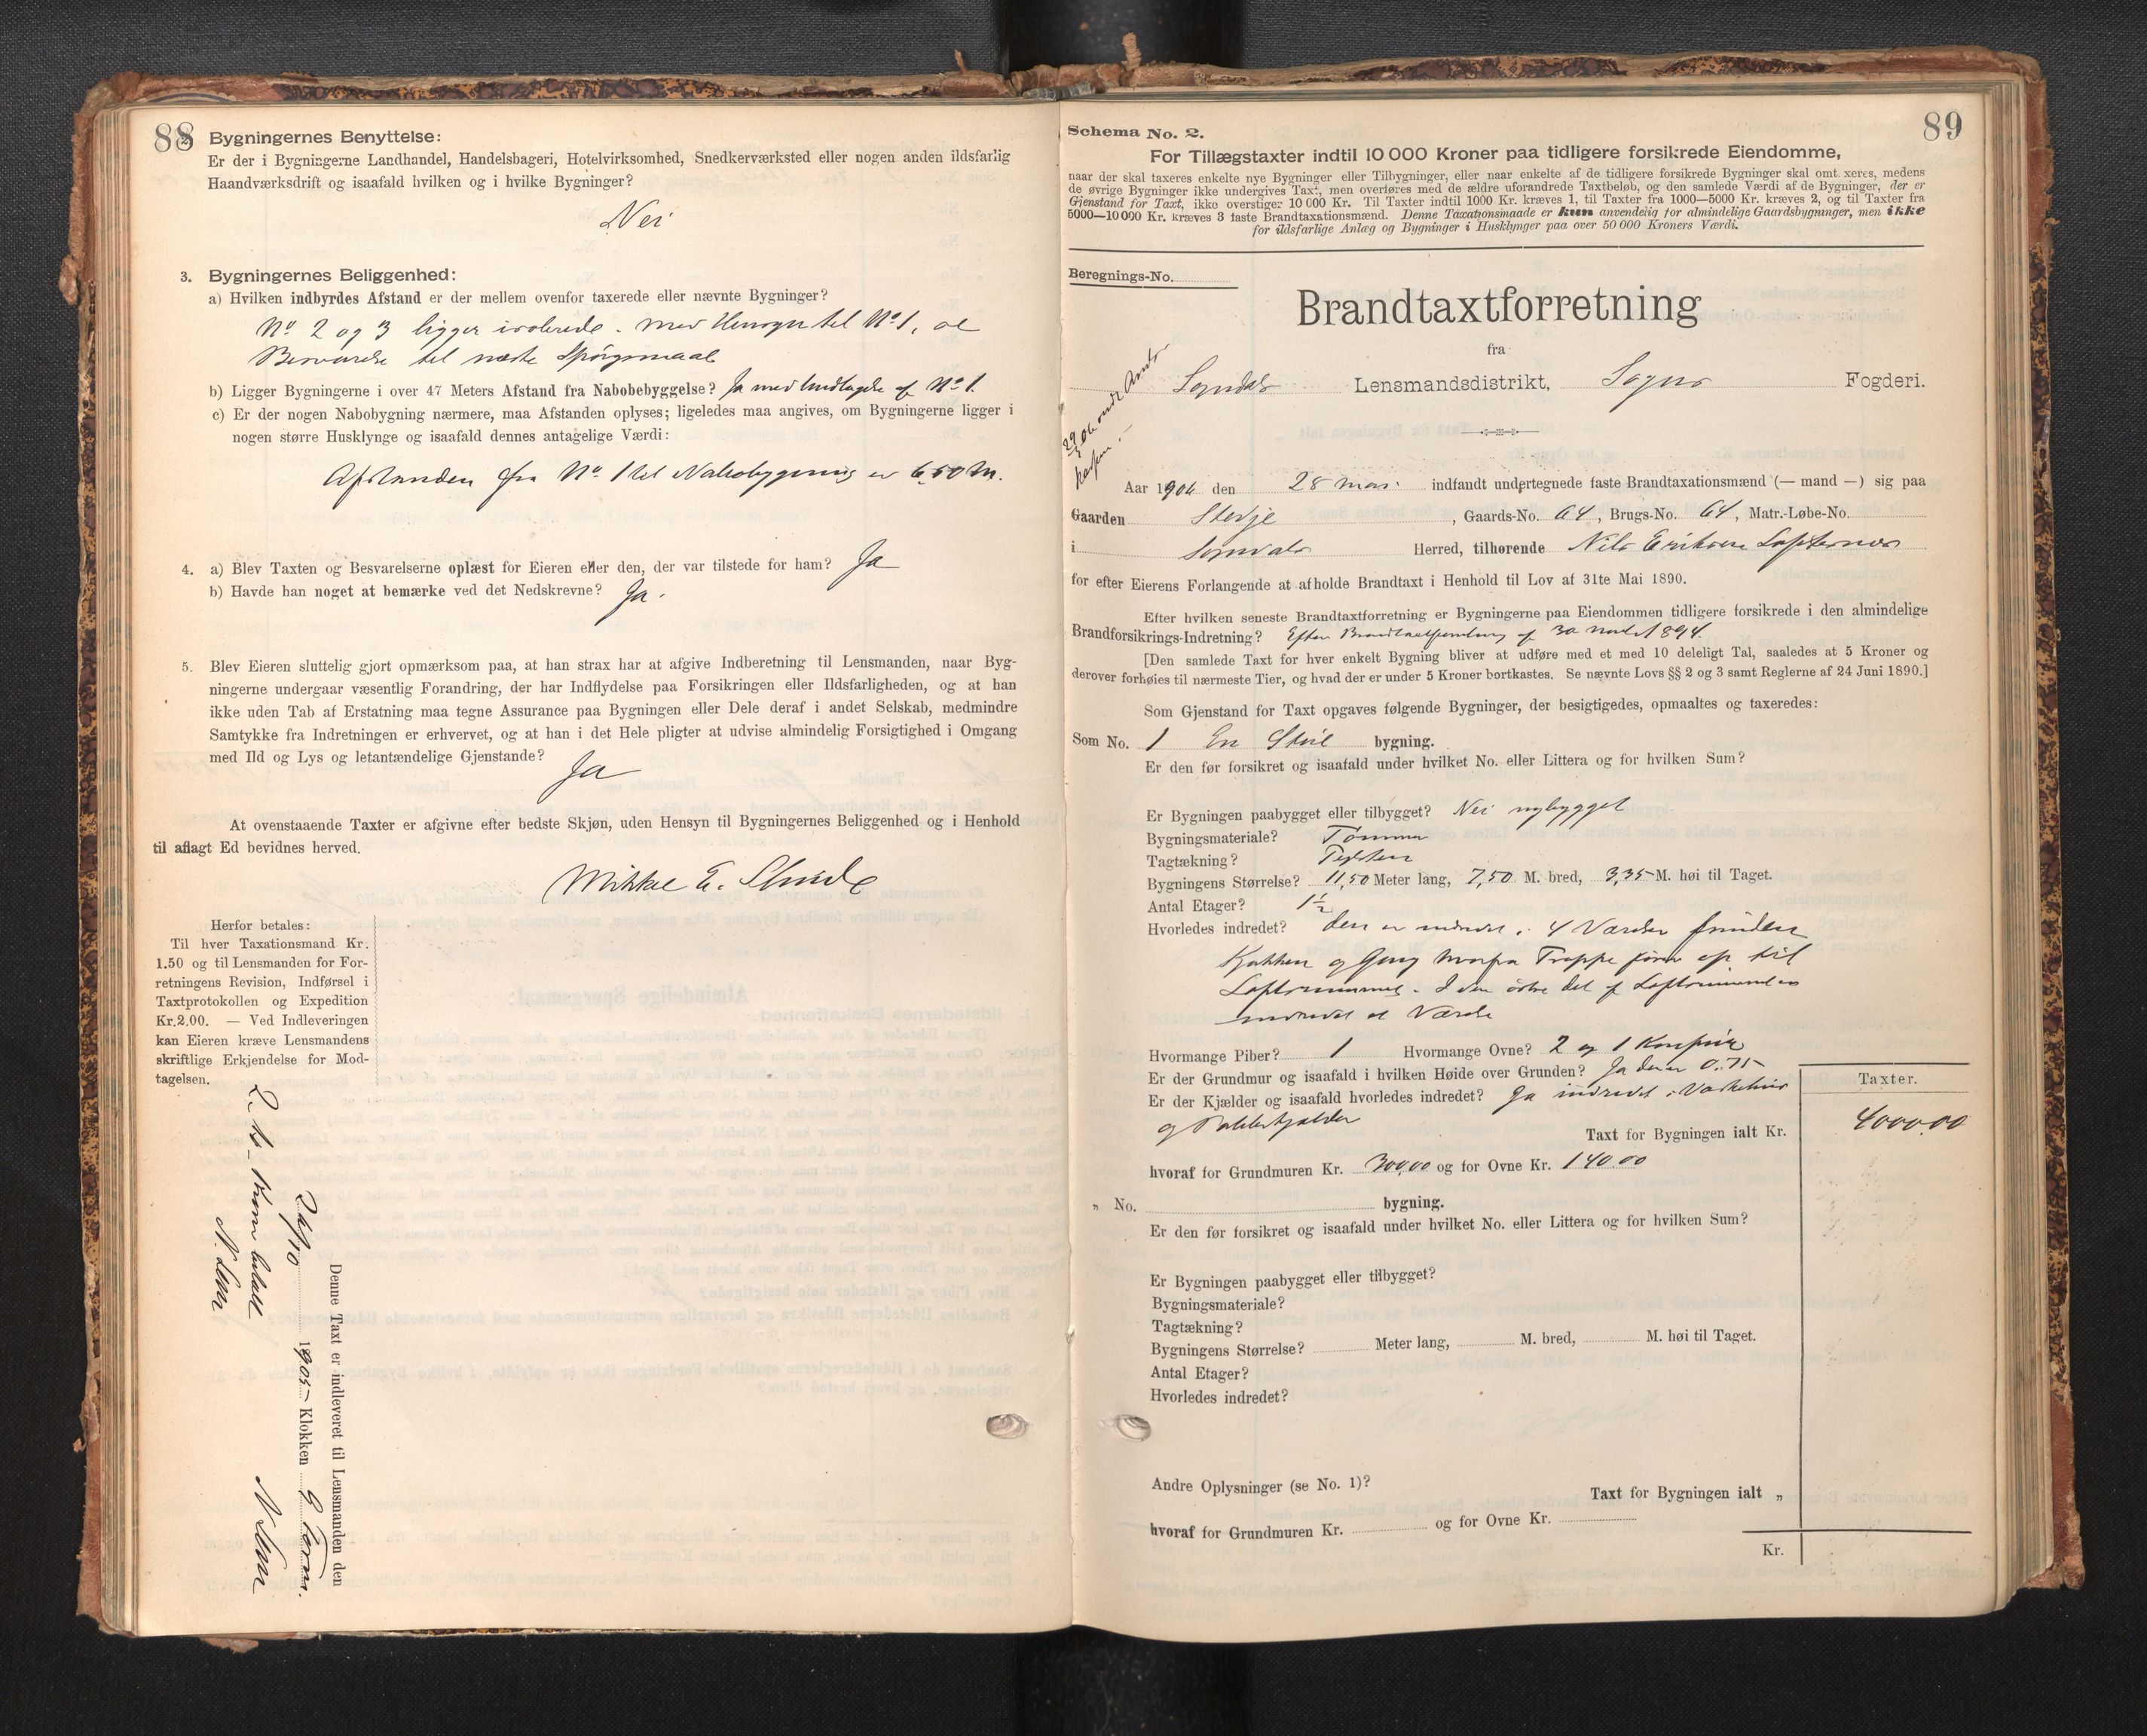 88
2. Bygningernes Benyttelse:
Er der i Bygningerne Landhandel, Handelsbageri, Hotelvirksomhed, Snedkerværksted eller nogen anden ildsfarlig
Haandværksdrift og isaafald hvilken og i hvilke Bygninger?
Nei
3. Bygningernes Beliggenhed:
a) Hvilken indbyrdes Afstand er der mellem ovenfor taxerede eller nævnte Bygninger?
No 2 og 3 ligger isolerede. Med Hensyn til No 1, se
Besvarelse til næste Spörgsmaal
b) Ligger Bygningerne i over 47 Meters Afstand fra Nabobebyggelse? Ja med Undtagelse af No 1.
c) Er der nogen Nabobygning nærmere, maa Afstanden oplyses; ligeledes maa angives, om Bygningerne ligger i
nogen større Husklynge og isaafald dennes antagelige Værdi:
Afstanden fra No 1 til Nabobygning er 6,50 M.
4. a) Blev Taxten og Besvarelserne oplæst for Eieren eller den, der var tilstede for ham? Ja
b) Havde han noget at bemærke ved det Nedskrevne? Ja.
5. Blev Eieren sluttelig gjort opmærksom paa, at han strax har at afgive Indberetning til Lensmanden, naar Byg-
ningerne undergaar væsentlig Forandring, der har Indflydelse paa Forsikringen eller Ildsfarligheden, og at han
ikke uden Tab af Erstatning maa tegne Assurance paa Bygningen eller Dele deraf i andet Selskab, medmindre
Samtykke fra Indretningen er erhvervet, og at han i det Hele pligter at udvise almindelig Forsigtighed i Omgang
med Ild og Lys og letantændelige Gjenstande?
Ja
At ovenstaaende Taxter er afgivne efter bedste Skjøn, uden Hensyn til Bygningernes Beliggenhed og i Henhold
til aflagt Ed bevidnes herved.
Mikkel E.
Herfor betales:
Til hver Taxationsmand Kr.
1.50 og til Lensmanden for For-
retningens Revision, Indførsel i
Taxtprotokollen og Expedition
Kr.2.00. — Ved Indleveringen
kan Eieren kræve Lensmandens
skriftlige Erkjendelse for Mod-
tagelsen.
Denne Taxt er indleveret til Lensmanden den
24/10 1905 Klokken 9 Form.
89
Schema No. 2.
For Tillægstaxter indtil 10 000 Kroner paa tidligere forsikrede Eiendomme,
naar der skal taxeres enkelte nye Bygninger eller Tilbygninger, eller naar enkelte af de tidligere forsikrede Bygninger skal omtaxeres, medens
de øvrige Bygninger ikke undergives Taxt, men overføres med de ældre uforandrede Taxtbeløb, og den samlede Værdi af de Bygninger, der er
Gjenstand for Taxt, ikke overstiger 10 000 Kr. Til Taxter indtil 1000 Kr. kræves 1, til Taxter fra 1000—5000 Kr. kræves 2, og til Taxter fra
5000—10 000 Kr. kræves 3 faste Brandtaxationsmænd. Denne Taxationsmaade er kun anvendelig for almindelige Gaardsbygninger, men ikke
for ildsfarlige Anlæg og Bygninger i Husklynger paa over 50 000 Kroners Værdi.
Beregnings-No.
Brandtaxtforretning
fra
Sogndals Lensmandsdistrikt, Sogns Fogderi.
Aar 1906 den 28 mai indfandt undertegnede faste Brandtaxationsmænd (— mand —) sig paa
Gaarden Stedje, Gaards-No. 64, Brugs-No. 64, Matr.-Løbe-No.
i Sogndals Herred, tilhørende Nils Eriksen Loftesnes
for efter Eierens Forlangende at afholde Brandtaxt i Henhold til Lov af 31te Mai 1890.
Efter hvilken seneste Brandtaxtforretning er Bygningerne paa Eiendommen tidligere forsikrede i den almindelige
Brandforsikrings-Indretning? Efter Brandtaxtforretning af 30 1894.
[Den samlede Taxt for hver enkelt Bygning bliver at udføre med et med 10 deleligt Tal, saaledes at 5 Kroner og
derover forhøies til nærmeste Tier, og hvad der er under 5 Kroner bortkastes. Se nævnte Lovs §§ 2 og 3 samt Reglerne af 24 Juni 1890.]
Som Gjenstand for Taxt opgaves følgende Bygninger, der besigtigedes, opmaaltes og taxeredes:
Som No. 1 En bygning.
Er den før forsikret og isaafald under hvilket No. eller Littera og for hvilken Sum?
Er Bygningen paabygget eller tilbygget? Nei nybygget
Bygningsmateriale? Tømmer
Tagtækning? Teglsten
Bygningens Størrelse? 11,50 Meter lang, 7,50 M. bred, 3,35 M. høi til Taget.
Antal Etager? 1½
Hvorledes indredet? den er indredet i 4 Værelser foruden
Kjøkken og Gang hvorfra Trappe fører op til
Loftsrummet. I den østre del af Loftsrummet er
indredet et Værelse
Hvormange Piber? 1 Hvormange Ovne? 2 og 1 Komfur
Er der Grundmur og isaafald i hvilken Høide over Grunden? Ja den er 0.75
Er der Kjælder og isaafald hvorledes indredet? Ja indredet i Vaskehus
og
Taxter.
Taxt for Bygningen ialt Kr. 4000.00
hvoraf for Grundmuren Kr. 300,00 og for Ovne Kr. 140.00
„ No. bygning.
Er den før forsikret og isaafald under hvilket No. eller Littera og for hvilken Sum?
Er Bygningen paabygget eller tilbygget?
Bygningsmateriale?
Tagtækning?
Bygningens Størrelse? Meter lang, M. bred, M. høi til Taget.
Antal Etager?
Hvorledes indredet?
Andre Oplysninger (se No. 1)?
Taxt for Bygningen ialt „
hvoraf for Grundmuren Kr. og for Ovne Kr.
Kr.